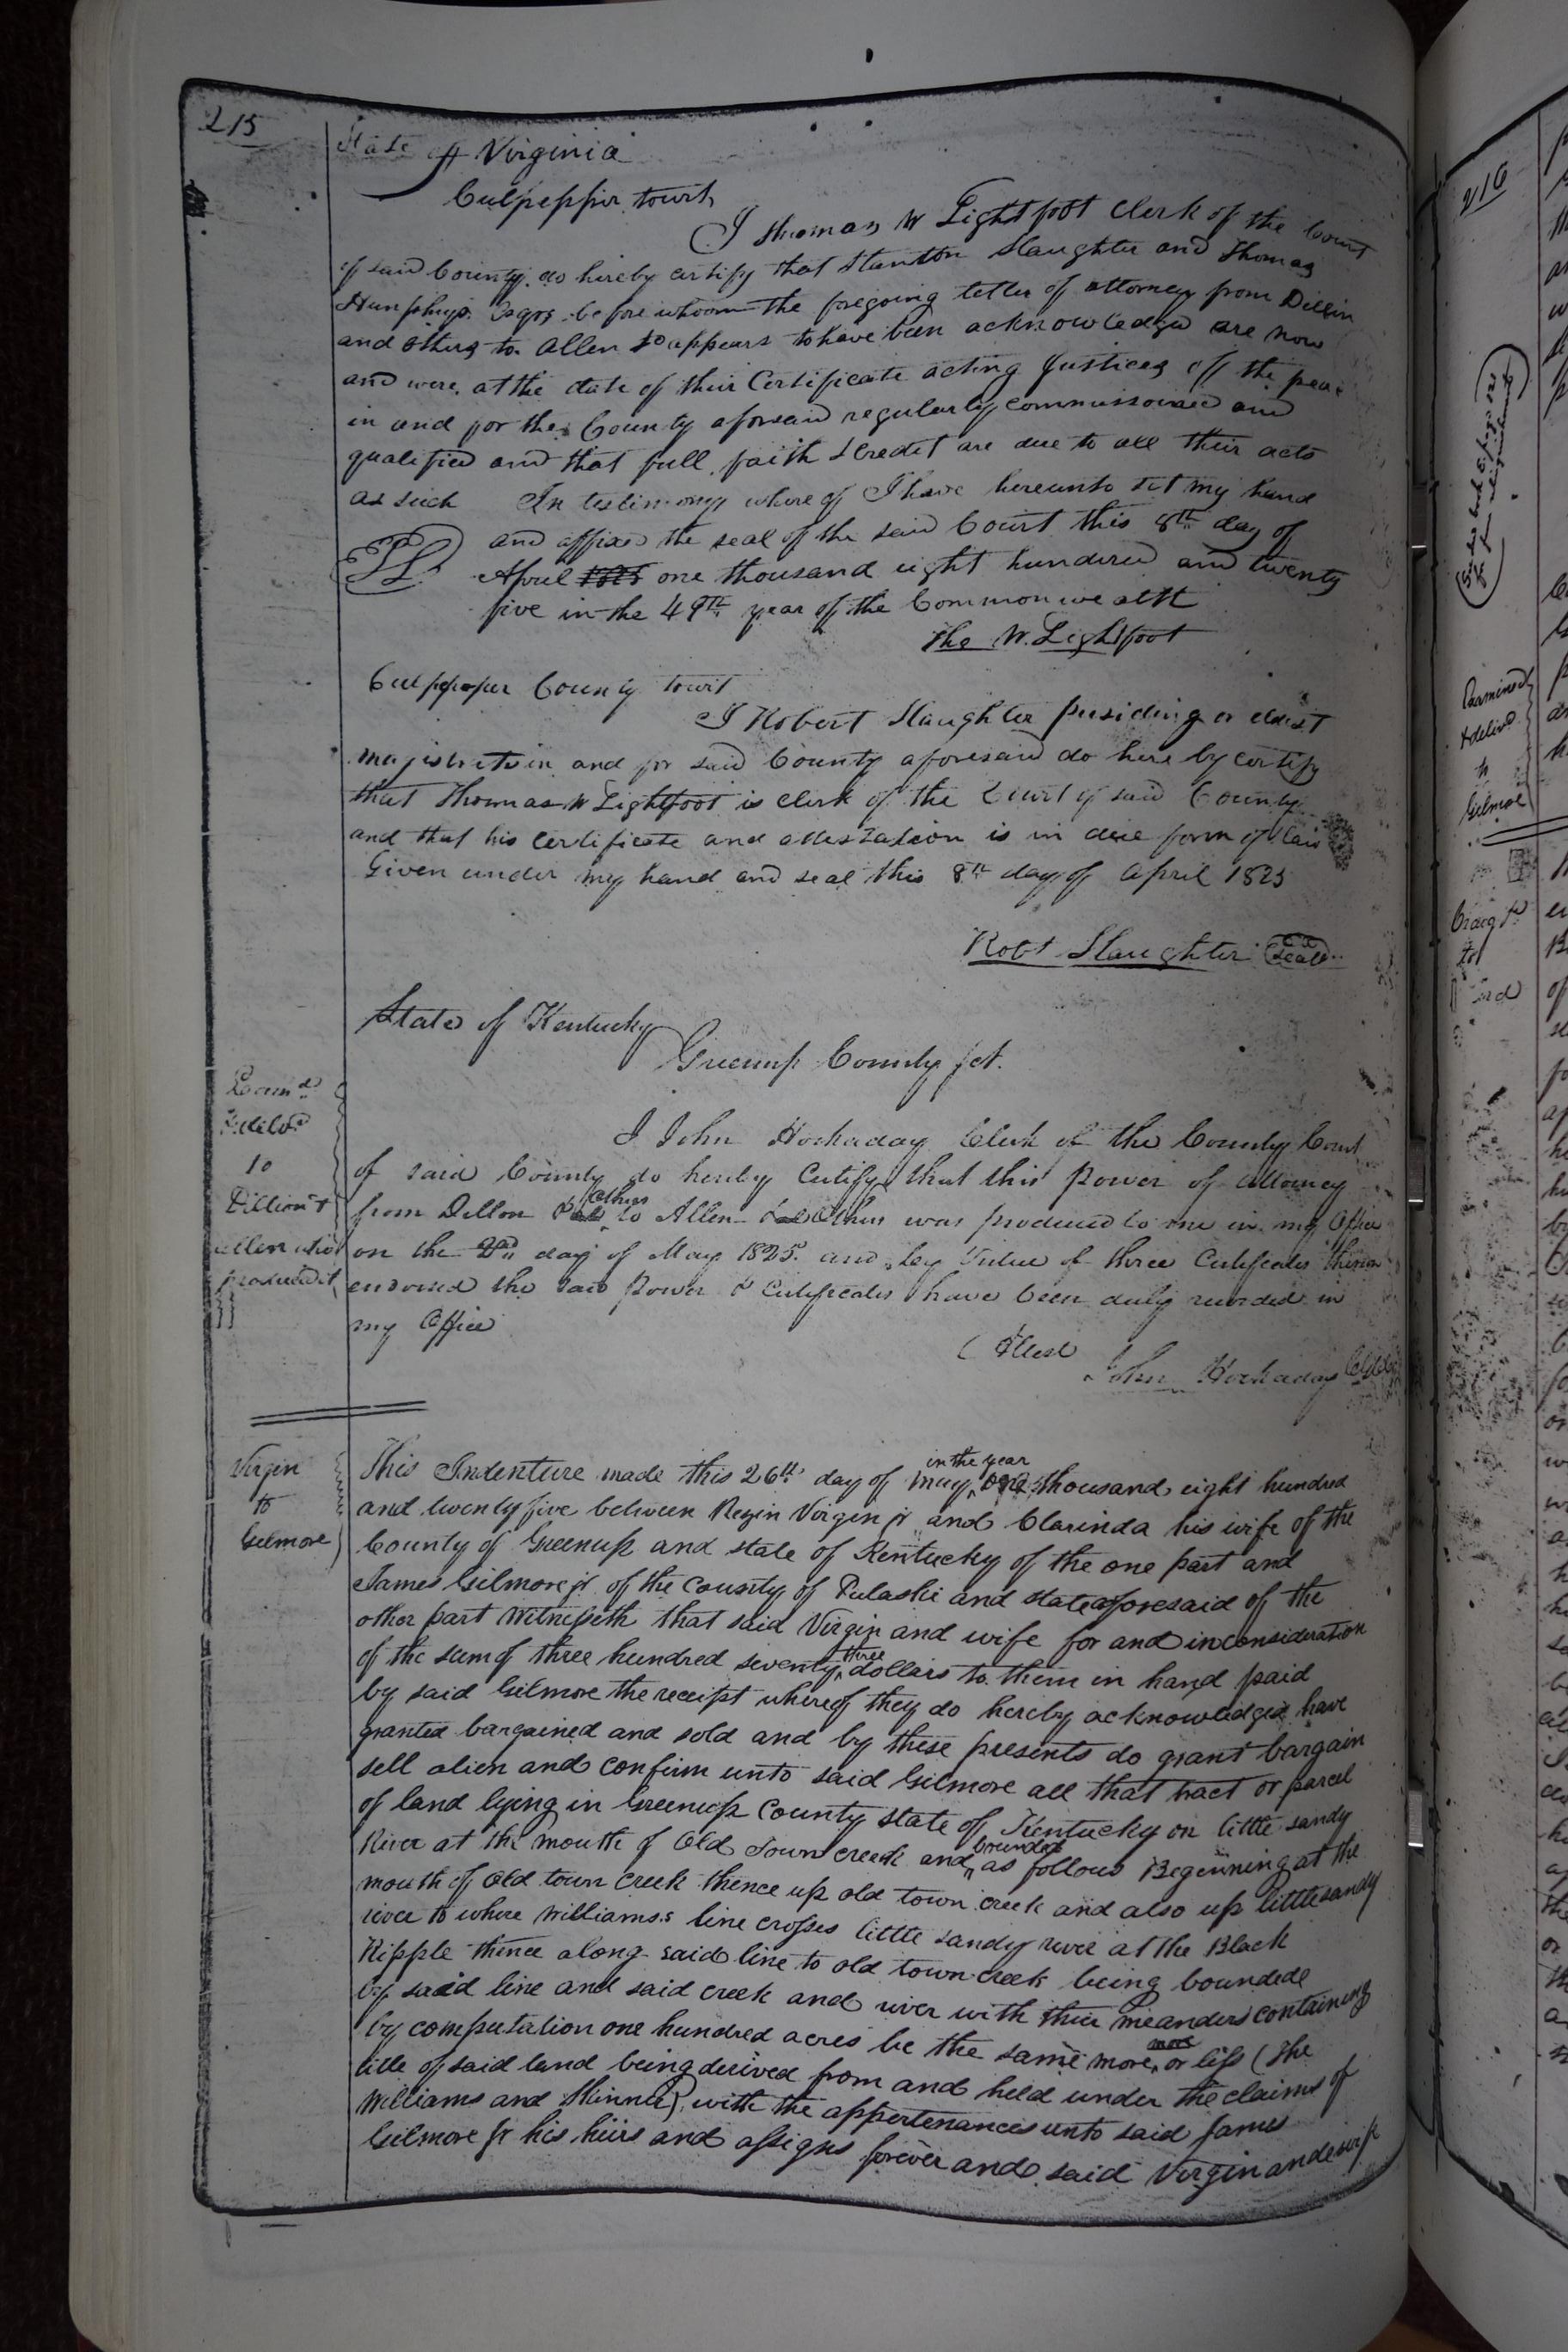 215
State of Virginia
Culpepper towit
I Thomas W Lightfoot Clerk of the Court
of said County do hereby certify that Stanton Slaughter and Thomas
Humphrys Esqrs before whom the foregoing letter of attorney from Dillin
and others to Allen &c appears to have been acknowledged are now
and were at the date of their Certificate acting Justices of the peace
in and for the County aforesaid regularly commissioned and
qualified and that full faith & credit are due to all their acts
as such In testimony where of I have hereunto set my hand
and affixed the seal of the said Court this 8th day of
April 1825 one thousand eight hundered and twenty
five in the 49th year of the Common we alth
Tho W. Lightfoot
Culppeper County towit
I Robert Slaughter presiding or eldest
majistrate in and for said County aforesaid do here by certify
that Thomas W Lightfoot is clerk of the Court of said County
and that his certificate and attestation is in due form of law
Given under my hand and seal this 8th day of April 1825
Robt Slaughter Seal
State of Kentucky
Greenup County sct.
Exam'd
& delvd
to
Dillion &
allen who
produced it
I John Hockaday Clerk of the County Court
of said County do hereby Certify that this Power of attorney
from Dillon & others to Allen & others was produced to me in my office
on the 2nd day of May 1825 and by Virtue of three Certificates thereon
endorsed the said Power & Certificates have been duly recorded in
my Office
Attest
John Hockaday Clk
Virgin
to
Gilmore
This Indenture made this 26th day of may in the year one thousand eight hundred
and twenty five between Rezin Virgin jr and Clarinda his wife of the
County of Greenup and state of Kentucky of the one part and
James Gilmore jr of the County of Pulaski and state aforesaid of the
other part Witnesseth that said Virgin and wife for and in consideration
of the sum of three hundred seventy three dollars to them in hand paid
by said Gilmore the receipt whereof they do hereby acknowledged have
granted bargained and sold and by these presents do grant bargain
sell alien and confirm unto said Gilmore all that tract or parcel
of land lying in Greenup County state of Kentucky on little sandy
River at the mouth of Old Town creek and bounded as follows Beginning at the
mouth of Old town Creek thence up old town creek and also up little sandy
river to where Williams.s line crosses little sandy river at the Black
Ripple thence along said line to old town creek being bounded
by said line and said creek and river with their meanders containing
by computation one hundred acres be the same more or less (The
title of said land being derived from and held under the claims of
Williams and Skinner) with the appertenances unto said James
Gilmore jr his heirs and assigns forever and said Virgin and wife
216
Examined
& delivd
to
Gilmore
Craig
to